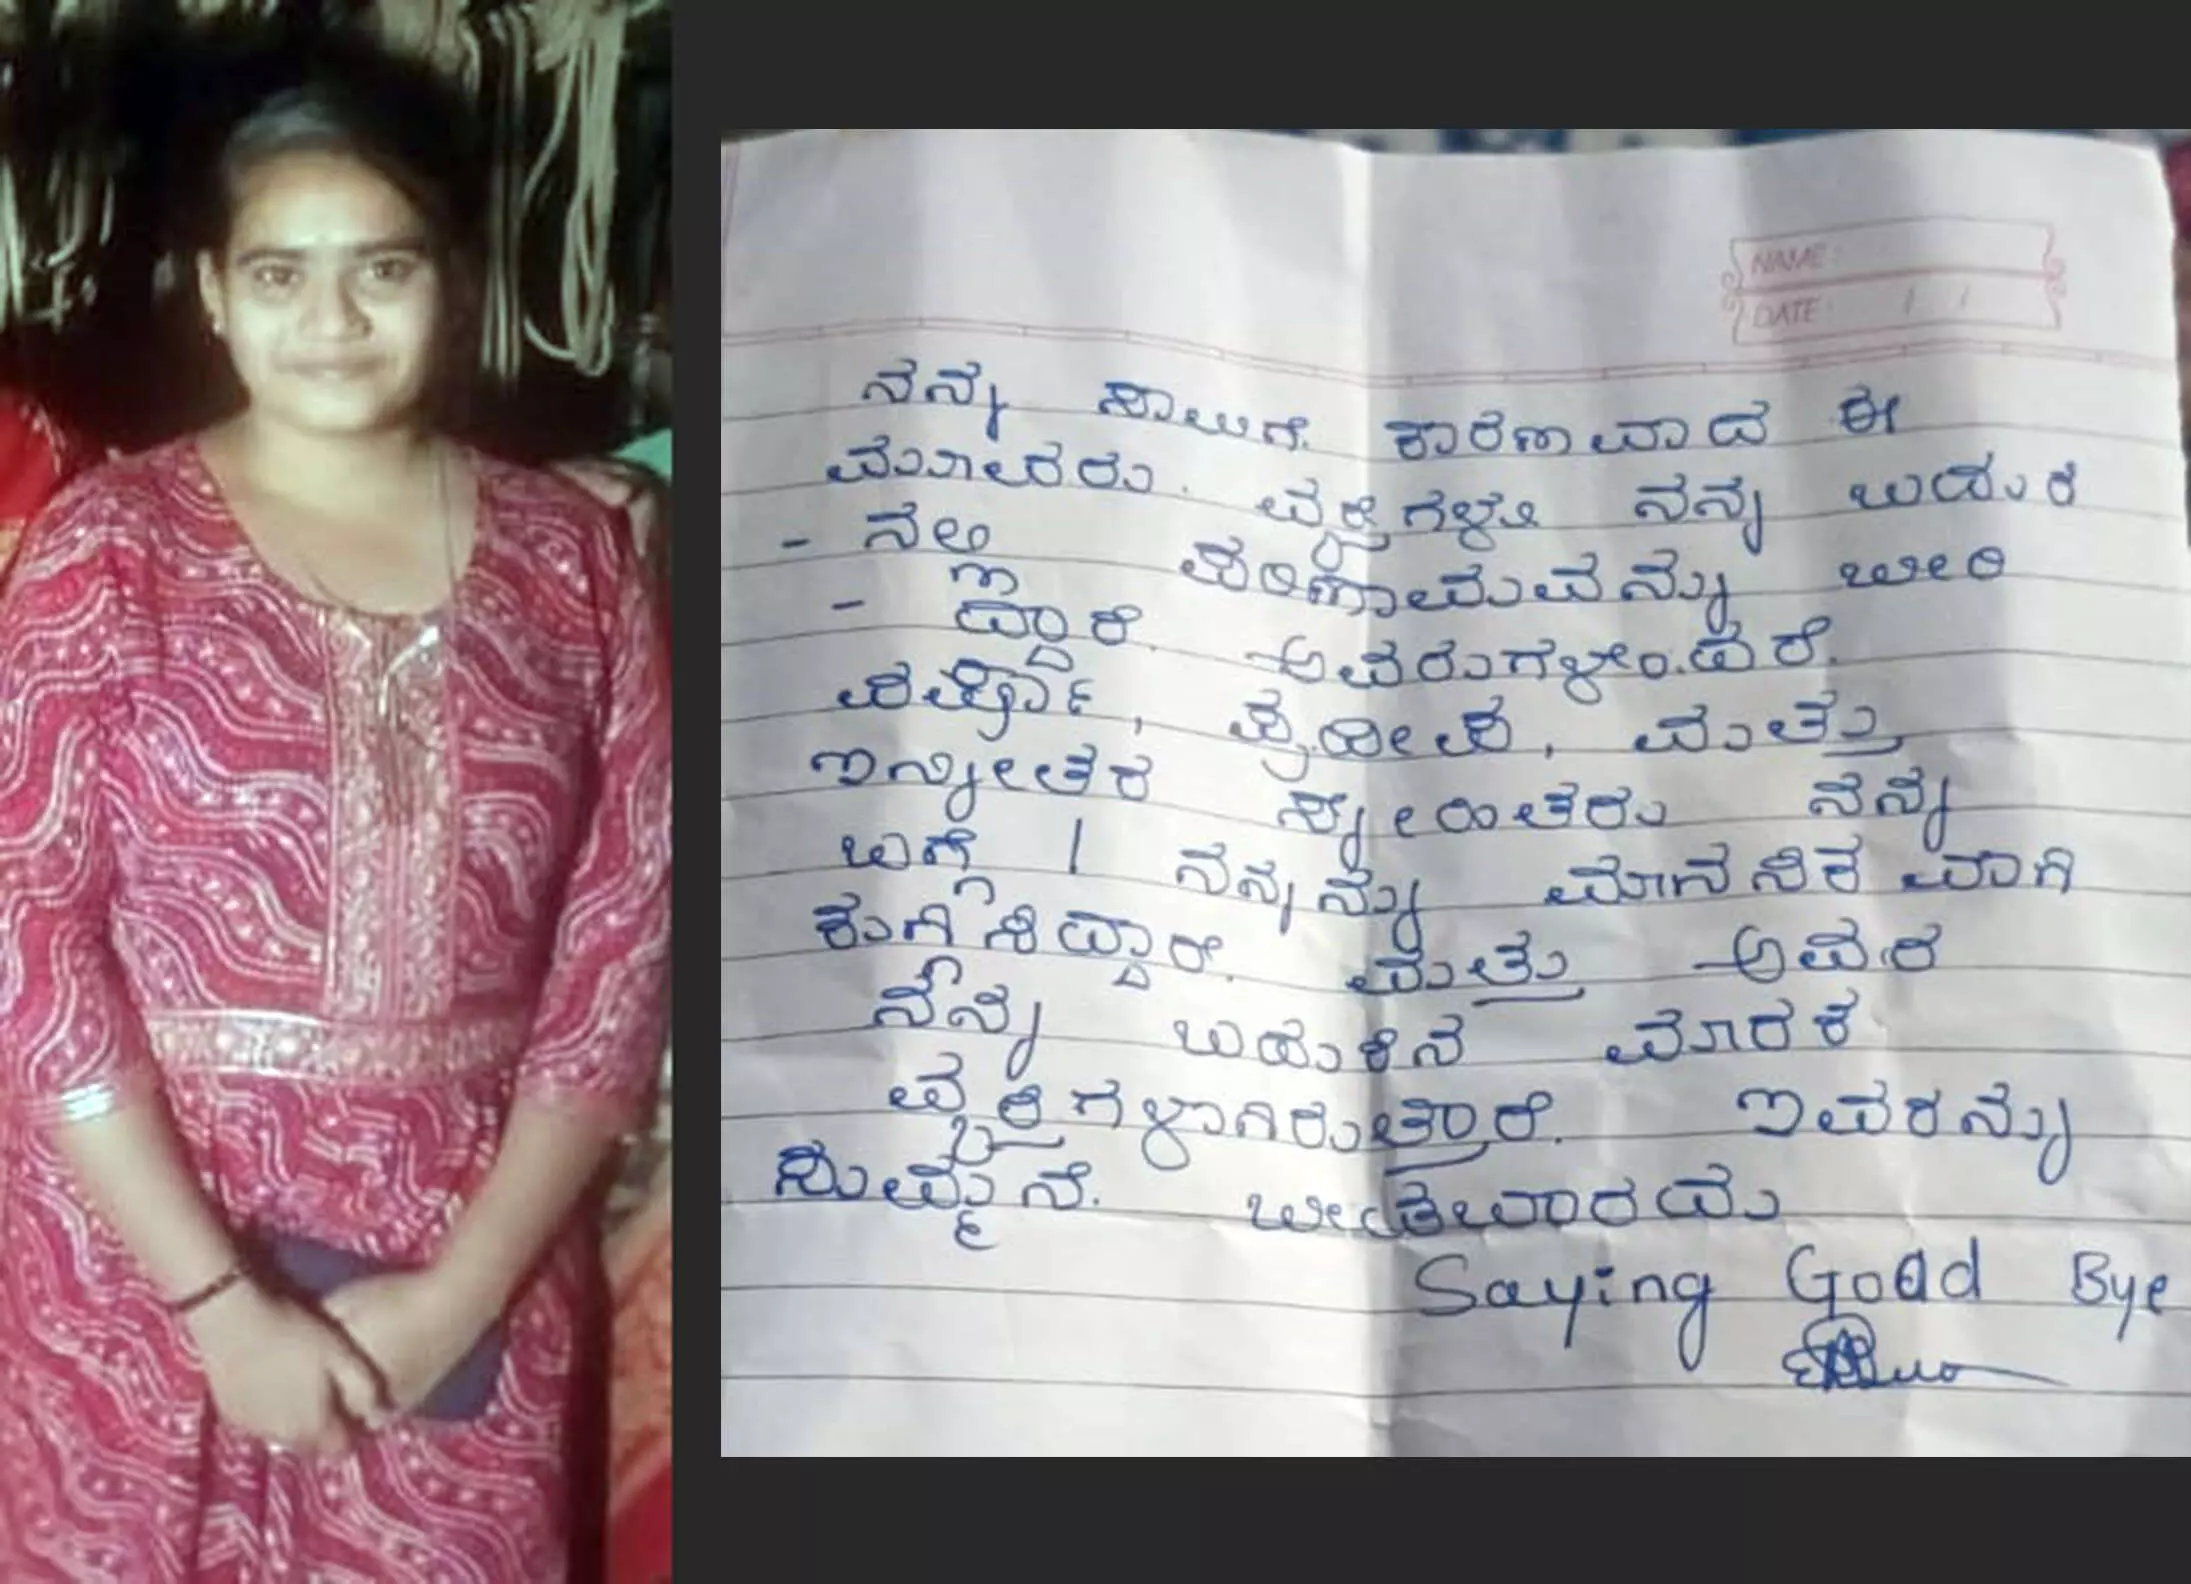 NAME:
DATE: / /
ನನ್ನ ಸಾವಿಗೆ. ಕಾರಣವಾದ ಈ
ಮೂವರು. ವ್ಯಕ್ತಿಗಳು ನನ್ನ ಬದುಕಿ
- ನಲ್ಲಿ ಪರಿಣಾಮವನ್ನು ಬೀರಿ
- ದ್ದಾರೆ. ಅವರುಗಳೆಂದರೆ.
ಮತ್ತು
ಇನ್ನೀತರ ಸ್ನೇಹಿತರು ನನ್ನ
ಬಗ್ಗೆ / ನನ್ನನ್ನು ಮಾನಸಿಕವಾಗಿ
ಕುಗ್ಗಿಸಿದ್ದಾರೆ. ಮತ್ತು ಅವರೆ
ನನ್ನ ಬದುಕಿನ ಮಾರಕ
ವ್ಯಕ್ತಿಗಳಾಗಿರುತ್ತಾರೆ. ಇವರನ್ನು
ಸುಮ್ಮನೆ.
Saying Good Bye